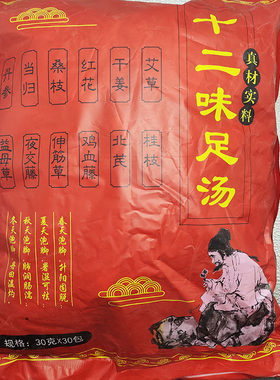 十二味足汤
真材实料
艾草
干姜
红花
桑枝
当归
丹参
桂枝
北芪
鸡血藤
伸筋草
夜交藤
益母草
春天泡脚 升阳固脱
夏天泡脚 暑湿可祛
秋天泡脚 肺润肠濡
冬天泡脚 丹田温灼
规格：30克×30包